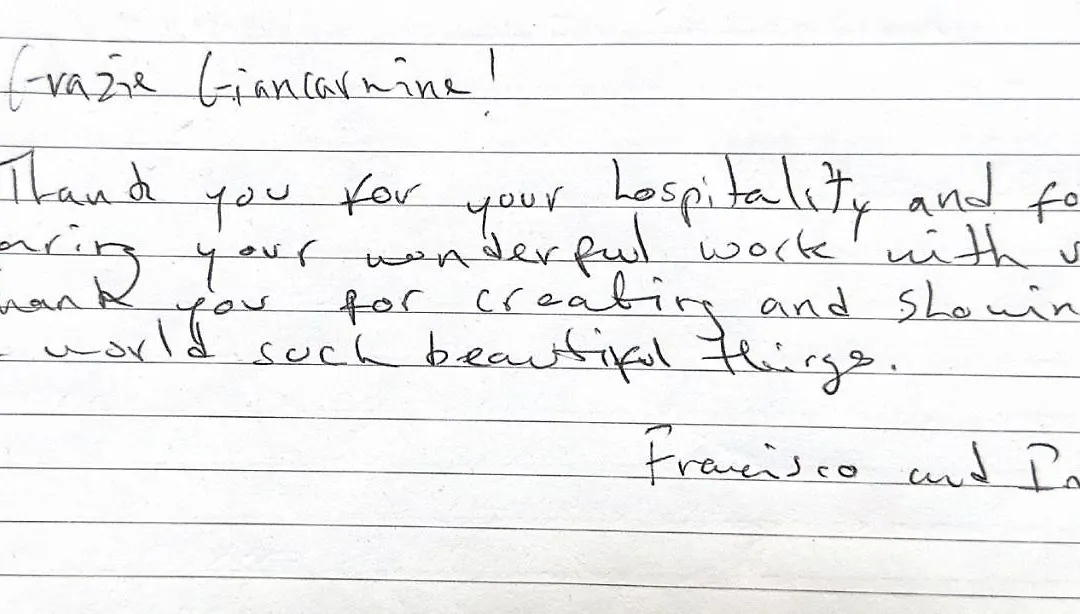 Grazie Giancarmine!
Thank you for your hospitality and fo
aring your wonderful work with u
hank you for creating and showin
world such beautiful things.
Francisco and In